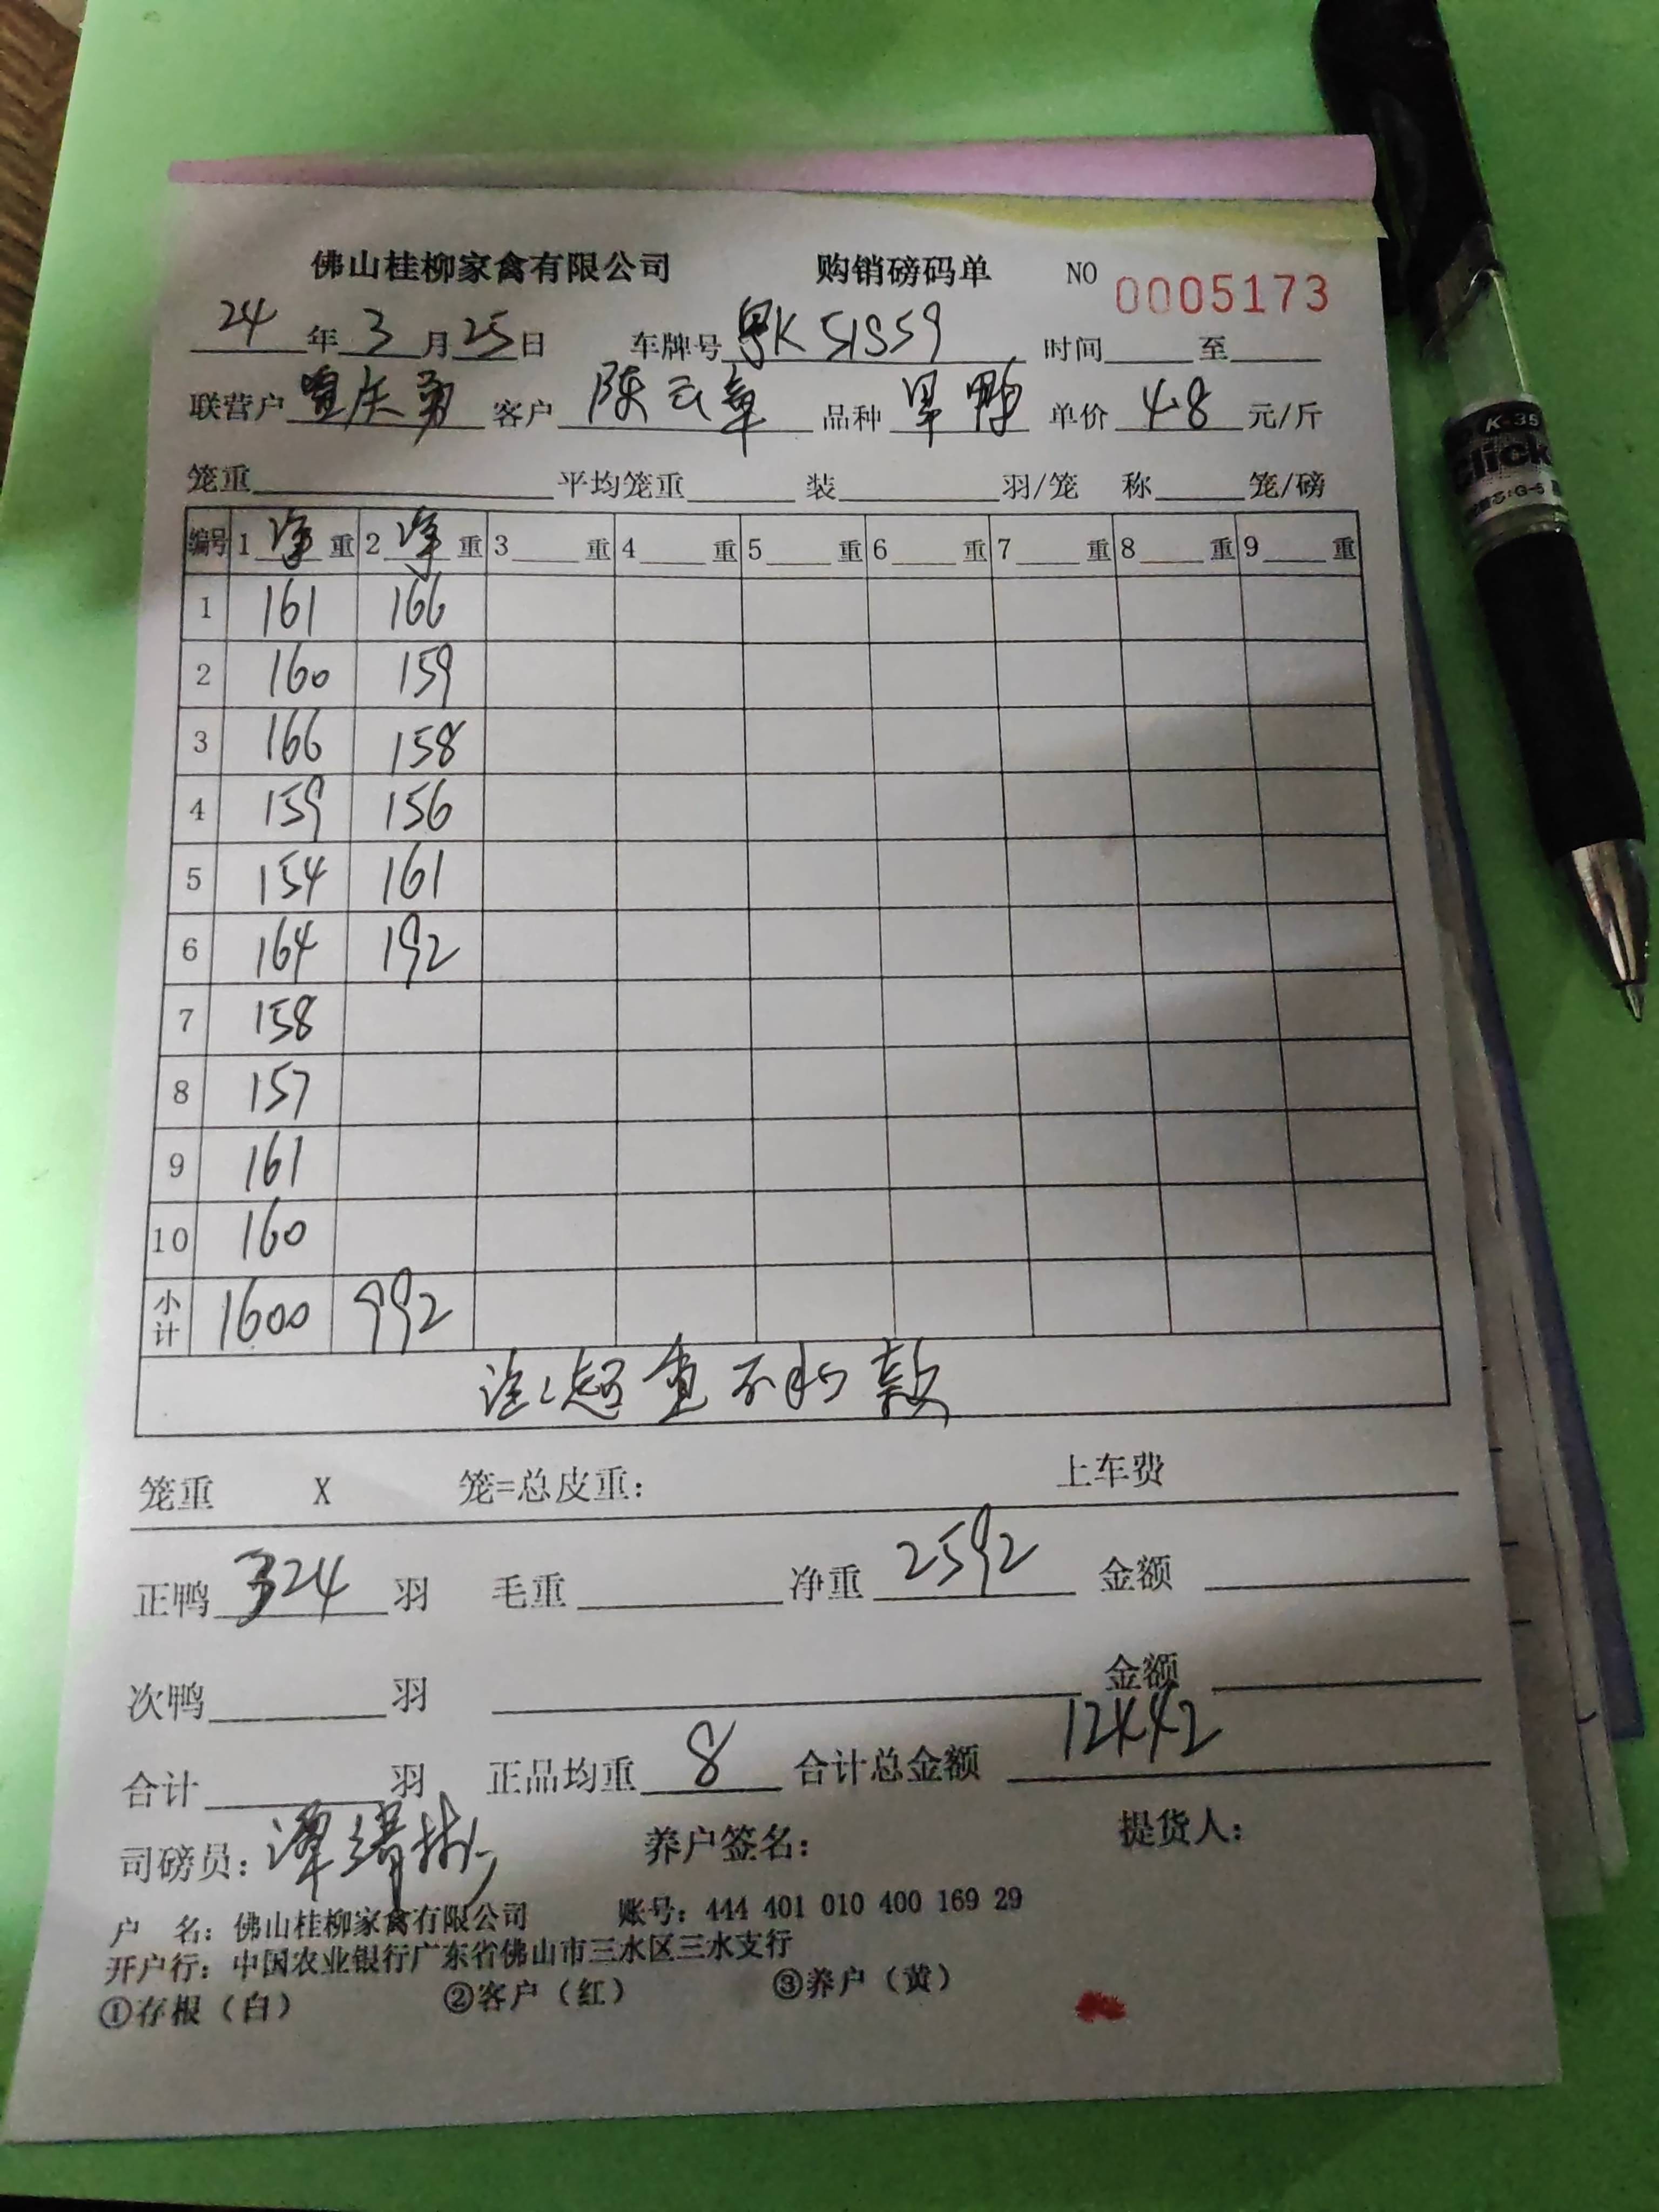 佛山桂柳家禽有限公司 购销磅码单 NO 0005173
24年3月25日 车牌号粤K51S59 时间 至
联营户 庆勇 客户 陈云章 品种 旱鸭 单价 4.8 元/斤
笼重 平均笼重 装 羽/笼 称 笼/磅
编号 1 净 重 2 净 重 3 重 4 重 5 重 6 重 7 重 8 重 9 重
1 161 166
2 160 159
3 166 158
4 159 156
5 154 161
6 164 192
7 158
8 157
9 161
10 160
小计 1600 992
注:超重不扣款
笼重 X 笼=总皮重: 上车费
正鸭 324 羽 毛重 净重 2592 金额
次鸭 羽 金额
合计 羽 正品均重 8 合计总金额 12442
司磅员: 养户签名: 提货人:
户 名: 佛山桂柳家禽有限公司 账号: 444 401 010 400 169 29
开户行: 中国农业银行广东省佛山市三水区三水支行
①存根(白) ②客户(红) ③养户(黄)
K-35
Click